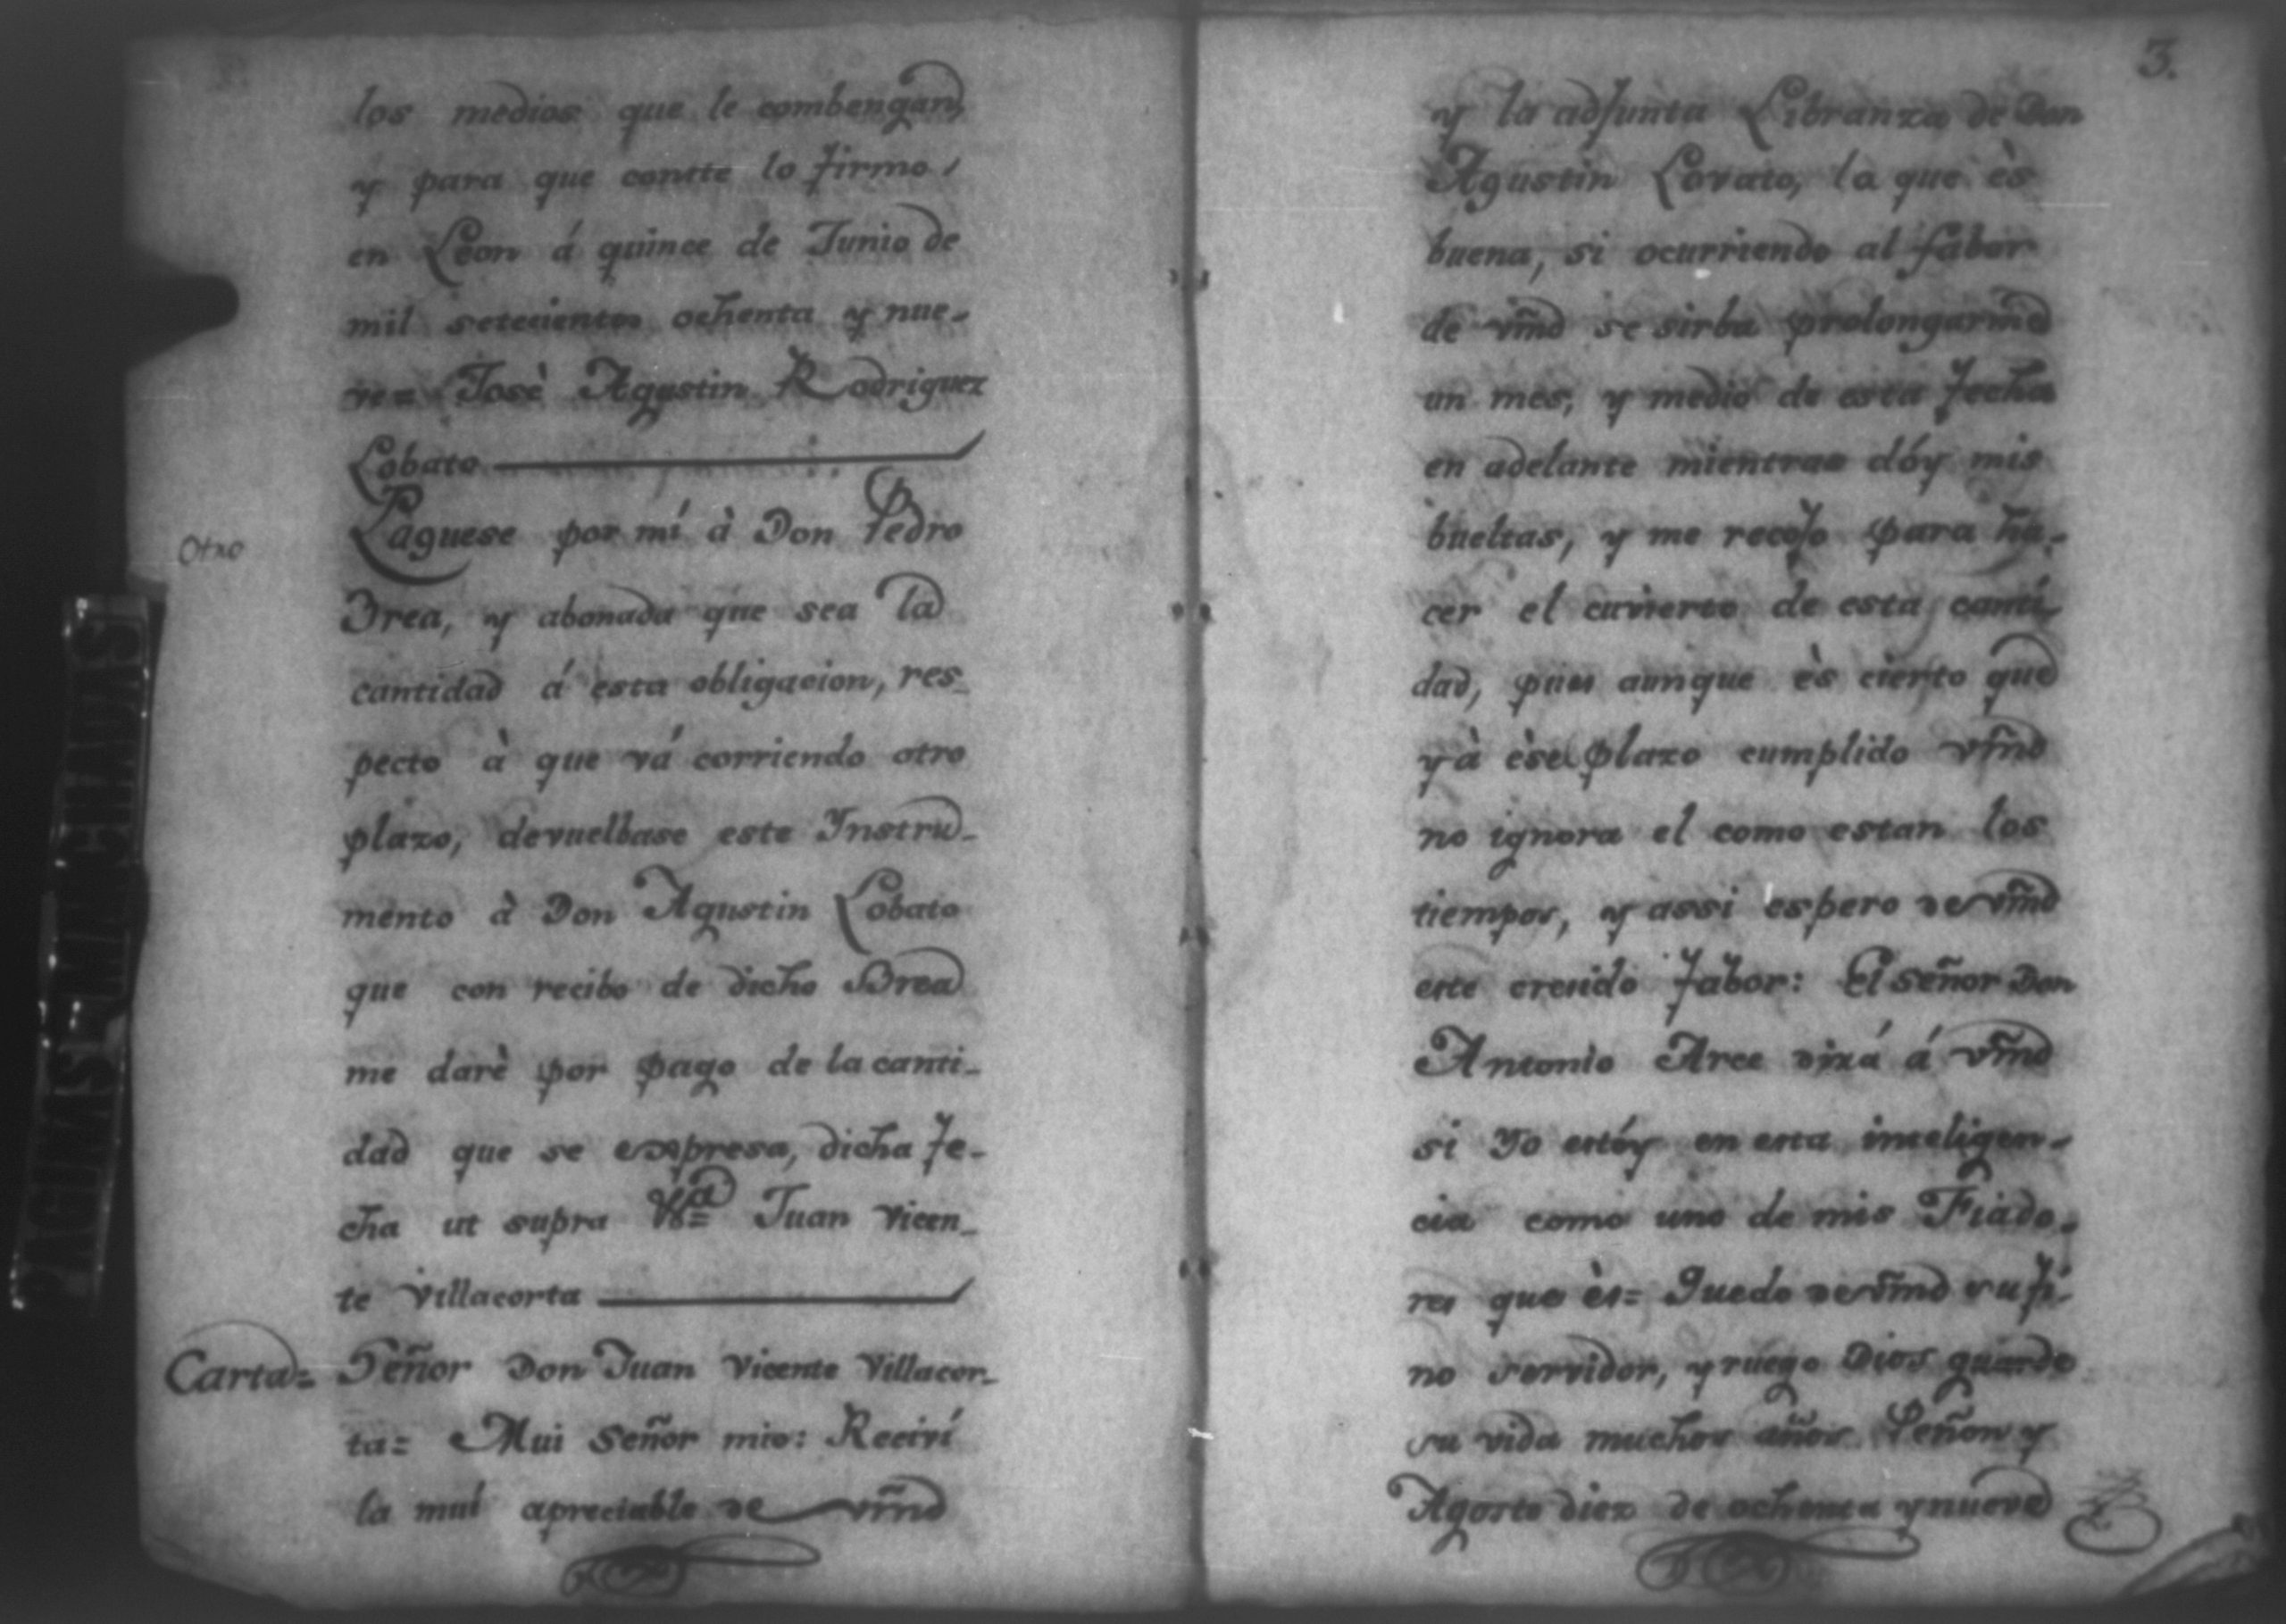 los medios que le combengan,
y para que contte lo firmo,
en Leon á quince de Junio de
mil setecientos ochenta y nue-
ve= Josè Agustin Rodriguez
Lobato
Otro
Paguese por mí à Don Pedro
Brea, y abonada que sea la
cantidad á esta obligacion, res-
pecto à que vá corriendo otro
plazo, devuelbase este Instru-
mento à Don Agustin Lobato
que con recibo de dicho Brea
me darè por pago de la canti-
dad que se expresa, dicha fe-
cha ut supra Juan Vicen-
te Villacorta
Carta= Señor Don Juan Vicente Villacor-
ta= Mui Señor mio: Recivi
la mui apreciable de vm̃d
3.
y la adjunta Libranza de Don
Agustin Lovato, la que ès
buena, si ocurriendo al fabor
de vm̃d se sirba prolongarme
un mes, y medio de esta fecha
en adelante mientras dóy mis
bueltas, y me recojo para ha-
cer el cuvierto de esta canti-
dad, pues aunque ès cierto que
yà ese plazo cumplido vm̃d
no ignora el como estan los
tiempos, y assi espero de vm̃d
este crecido fabor: El señor Don
Antonio Arce dirá á vm̃d
si Yo estóy en esta inteligen-
cia como uno de mis Fiado-
res que ès= Quedo de vm̃d su fi-
no servidor, y ruego Dios guarde
su vida muchos años Señor y
Agosto diez de ochenta y nueve
PAGINAS MANCHADAS